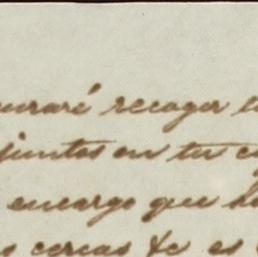 recoger
juntos en tu
encargo que
cercas &c es